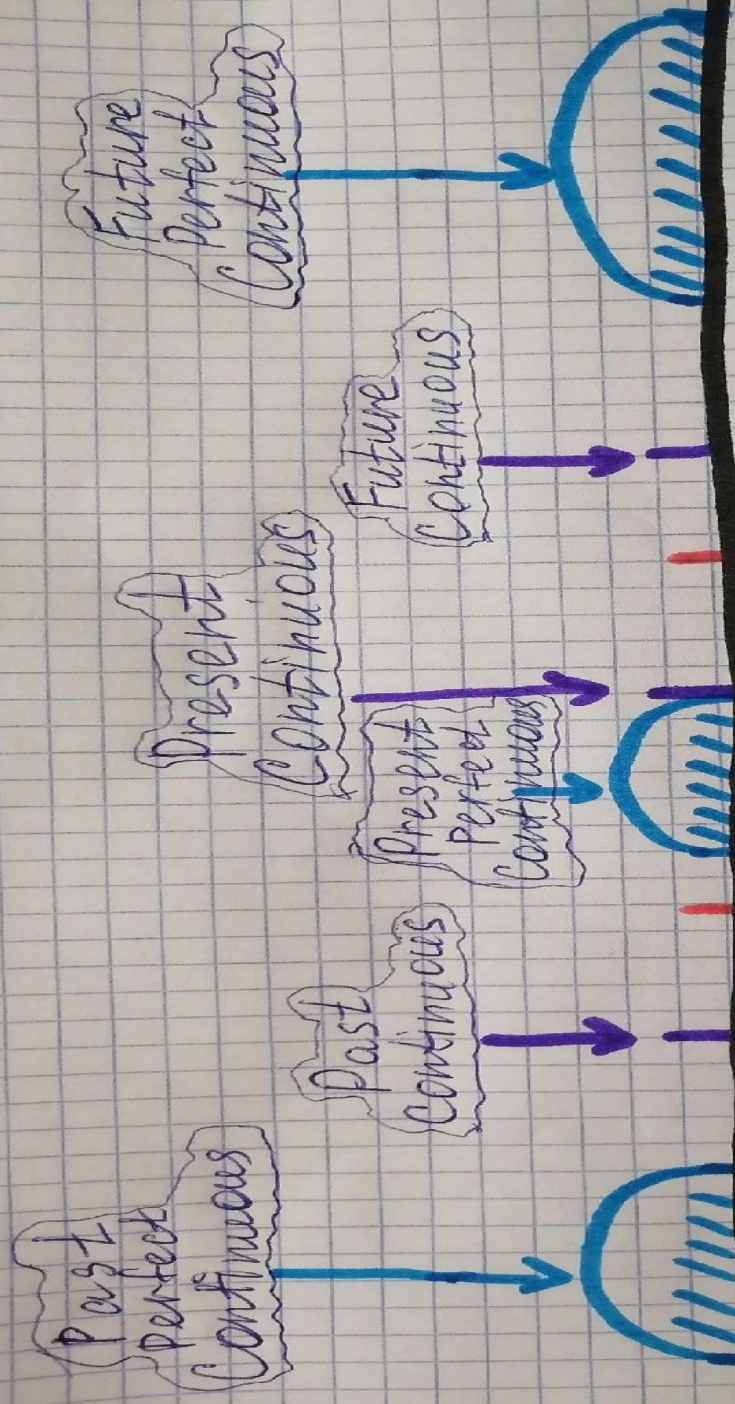 Past
Perfect
Continuous
Past
Continuous
Present
Perfect
Continuous
Present
Continuous
Future
Continuous
Future
Perfect
Continuous